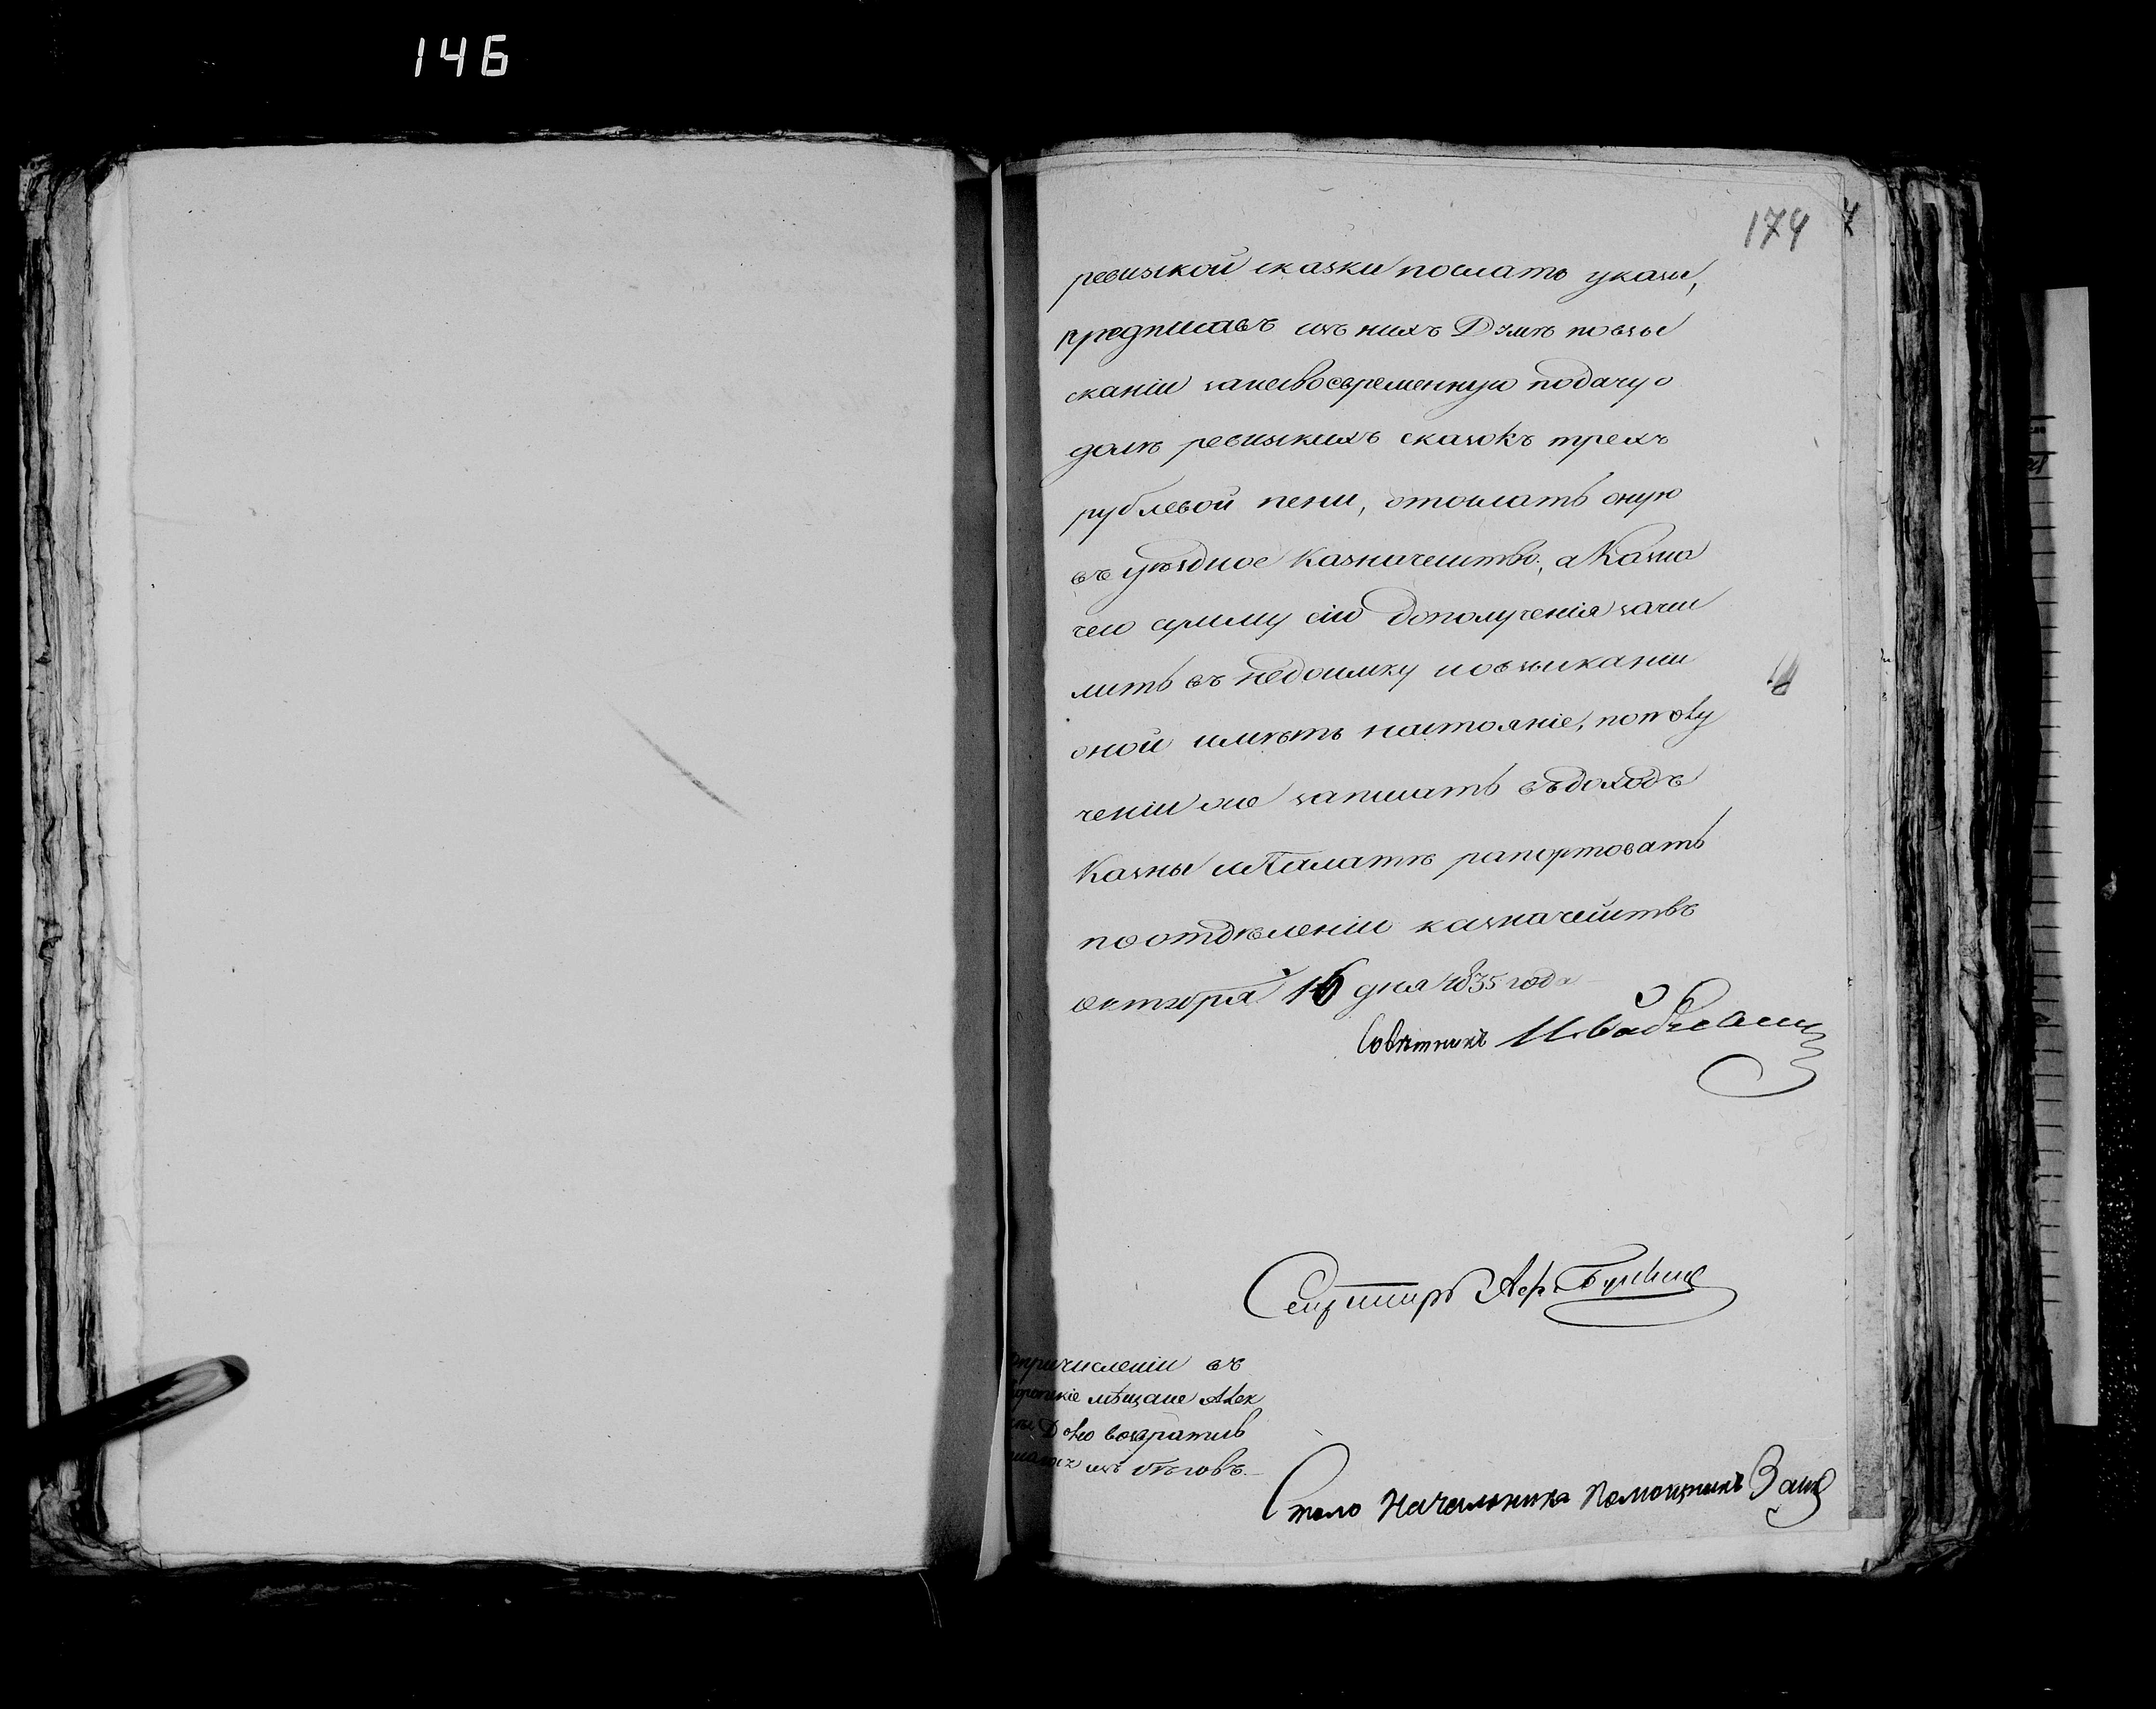 146
174
ревизской сказки послать указы,
предписавъ изъ нихъ Думѣ повзы
сканіи занесвоевременную подачу о
домѣ ревизкихъ сказокъ трехъ
рублевой пени, отослать оную
въ уѣздное Казначейство, а Казна
чею сумму сію дополученія зачи
лить въ недоимку ивзысканіи
оной имѣть настояніе, пополу
ченіи же записать въ доходъ
Казны иПалатѣ рапортовать
поотдѣленію казначействъ
октября 16 дня 1835 года
Совѣтникъ
Секретарь
опричисленіи въ
мѣщане Алек
возвратив
изъ бѣговъ.
Столо Начальника Помощникъ